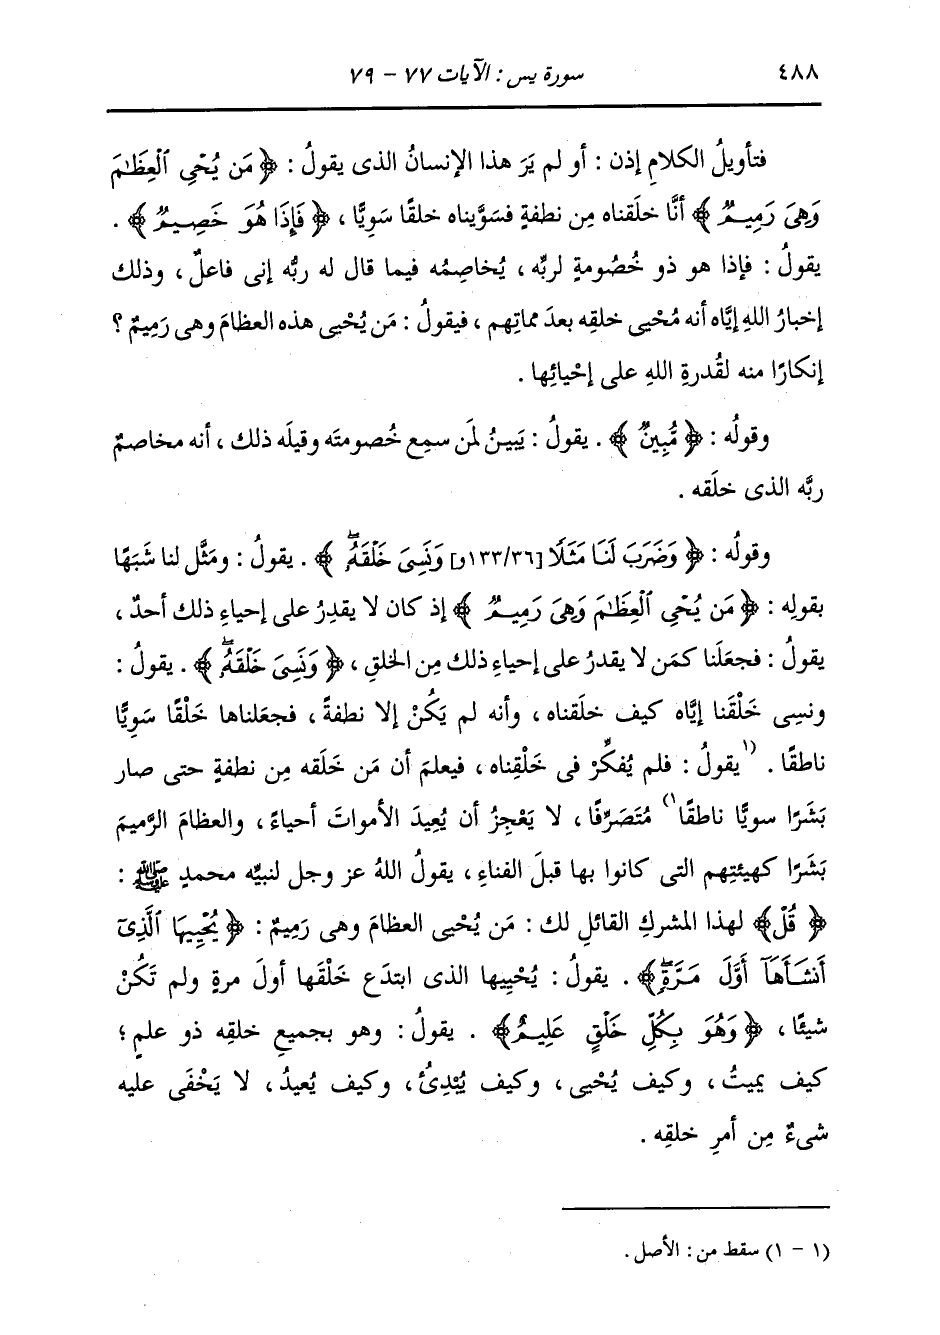 ٤٨٨ سورة يس : الآيات ٧٧ - ٧٩
فتأويلُ الكلامِ إذن : أو لم يَرَ هذا الإنسانُ الذى يقولُ : ﴿ مَن يُحْىِ ٱلْعِظَٰمَ
وَهِىَ رَمِيمٌ ﴾ أنَّا خلَقناه مِن نطفةٍ فسَوَّيناه خلقًا سَوِيًّا ، ﴿ فَإِذَا هُوَ خَصِيمٌ ﴾ .
يقولُ : فإذا هو ذو خُصُومةٍ لربِّه ، يُخاصِمُه فيما قال له ربُّه إنى فاعلٌ ، وذلك
إخبارُ اللهِ إيَّاه أنه مُحْيى خلقِه بعدَ مماتِهم ، فيقولُ : مَن يُحْيى هذه العظامَ وهى رَمِيمٌ ؟
إنكارًا منه لقُدرةِ اللهِ على إحْيائِها .
وقولُه : ﴿ مُّبِينٌ ﴾ . يقولُ : يَبينُ لمَن سمِع خُصومتَه وقيلَه ذلك ، أنه مخاصمٌ
ربَّه الذى خلَقه .
وقولُه : ﴿ وَضَرَبَ لَنَا مَثَلًا [١٣٣/٣٦و] وَنَسِىَ خَلْقَهُۥۖ ﴾ . يقولُ : ومَثَّل لنا شَبَهًا
بقولِه : ﴿ مَن يُحْىِ ٱلْعِظَٰمَ وَهِىَ رَمِيمٌ ﴾ إذ كان لا يقدِرُ على إحياءِ ذلك أحدٌ ،
يقولُ : فجعَلَنا كمَن لا يقدرُ على إحياءِ ذلك مِن الخلقِ ، ﴿ وَنَسِىَ خَلْقَهُۥۖ ﴾ . يقولُ :
ونسِى خَلْقَنا إيَّاه كيف خلَقناه ، وأنه لم يَكُنْ إلا نطفةً ، فجعَلناها خَلْقًا سَوِيًّا
ناطقًا . (١يقولُ : فلم يُفكِّرْ فى خَلْقِناه ، فيعلمَ أن مَن خَلَقه مِن نطفةٍ حتى صار
بَشَرًا سويًّا ناطقًا١) مُتَصَرِّفًا ، لا يَعْجِزُ أن يُعِيدَ الأمواتَ أحياءً ، والعظامَ الرَّميمَ
بَشَرًا كهيئتِهم التى كانوا بها قبلَ الفناءِ ، يقولُ اللهُ عز وجل لنبيِّه محمدٍ ﷺ :
﴿ قُلْ﴾ لهذا المشركِ القائلِ لك : مَن يُحْيى العظامَ وهى رَمِيمٌ : ﴿ يُحْيِيهَا ٱلَّذِىٓ
أَنشَأَهَآ أَوَّلَ مَرَّةٍۖ ﴾ . يقولُ : يُحْيِيها الذى ابتدَع خَلْقَها أولَ مرةٍ ولم تَكُنْ
شيئًا ، ﴿ وَهُوَ بِكُلِّ خَلْقٍ عَلِيمٌ﴾ . يقولُ : وهو بجميعِ خلقِه ذو علمٍ ؛
كيف يميتُ ، وكيف يُحْيى ، وكيف يُبْدِئُ ، وكيف يُعيدُ ، لا يَخْفَى عليه
شىءٌ مِن أمرِ خلقِه .
(١ - ١) سقط من : الأصل .